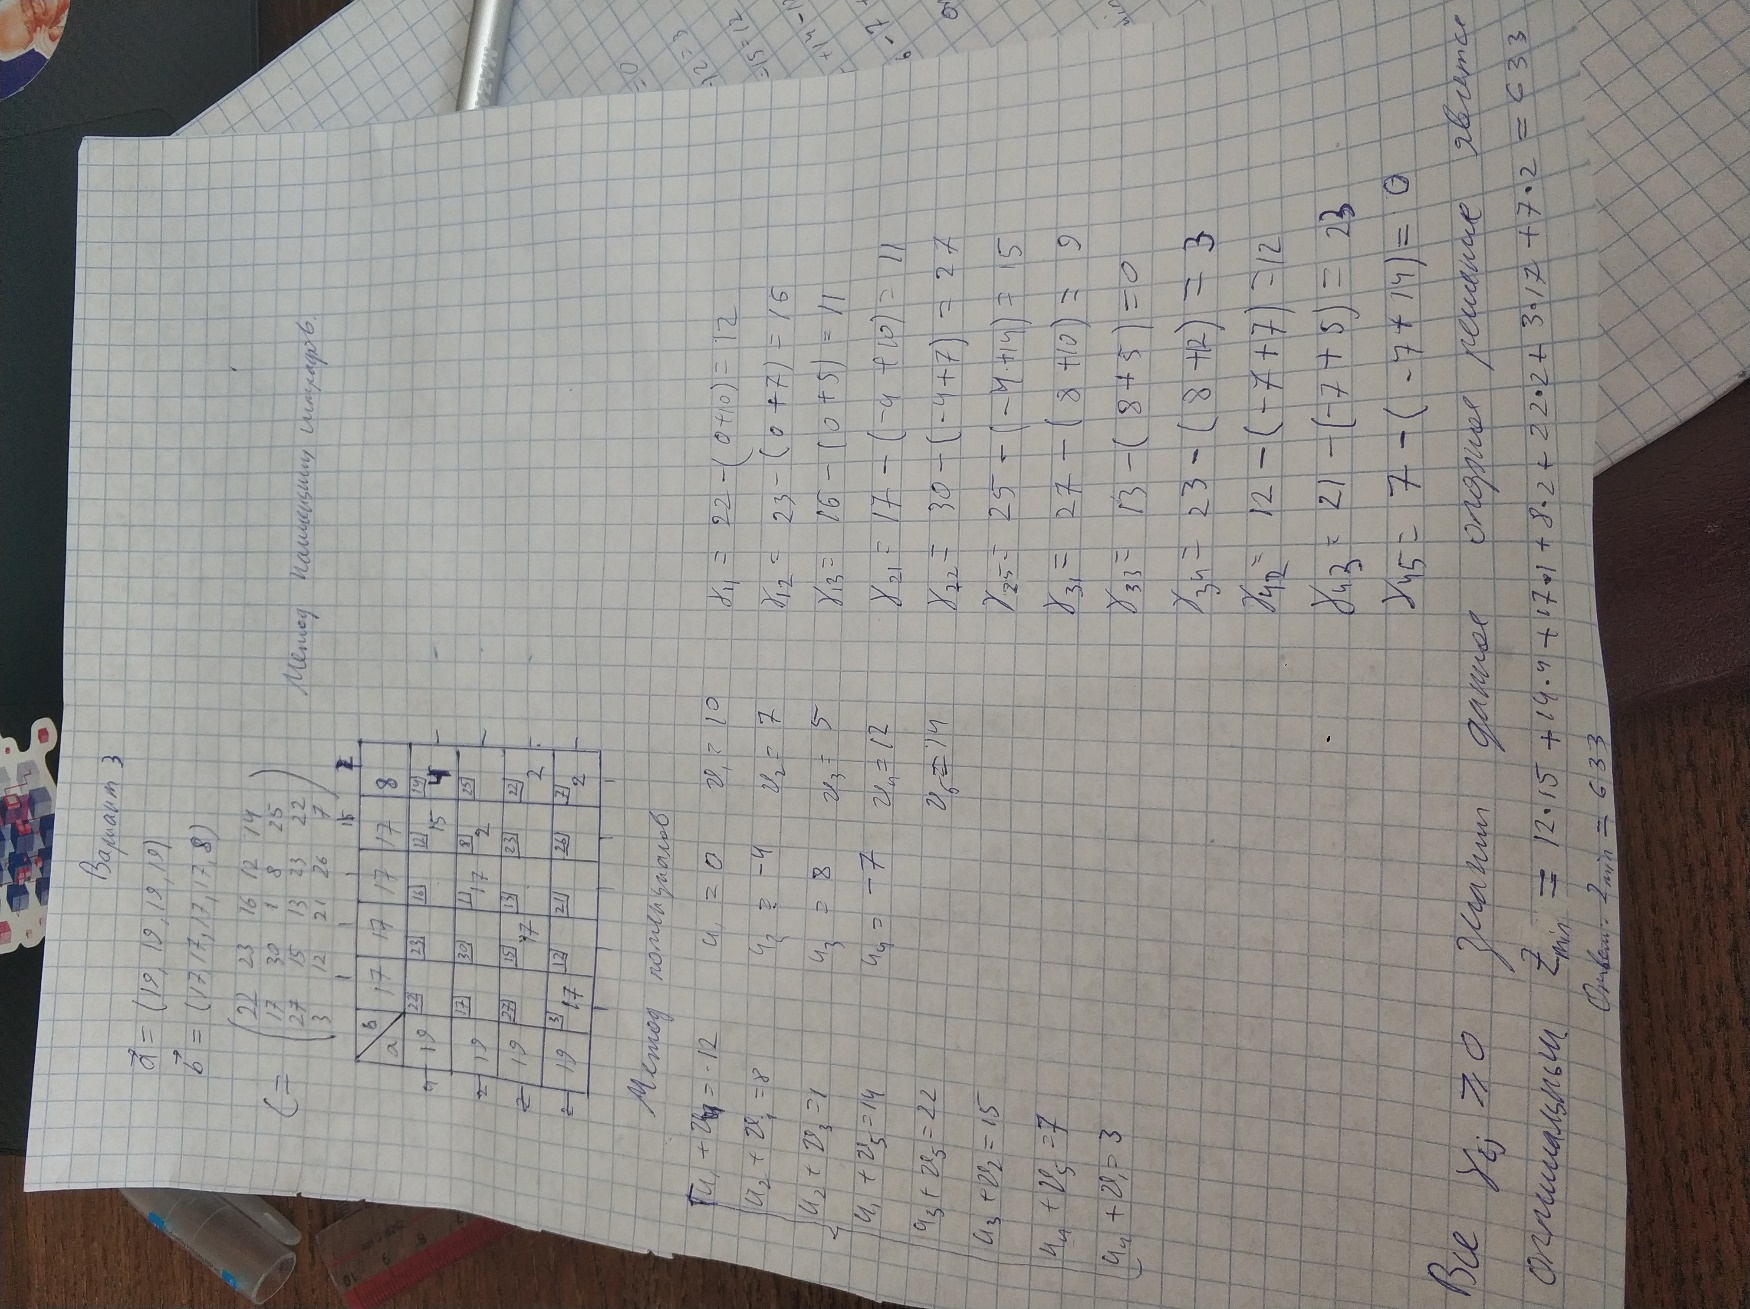 Вариант 3
a = (19, 19, 19, 19)
b = (17, 17, 17, 17, 8)
C = (22 23 16 12 14
17 30 1 8 25
27 15 13 23 22
3 12 21 26 7)
Метод наименьших штрафов.
a b 17 17 17 17 8
19 22 23 16 12 15 14 4
19 17 30 1 17 8 2 25
19 27 15 17 13 23 22 2
19 3 17 12 21 26 7 2
Метод потенциалов
u1 + v4 = 12
u2 + v4 = 8
u2 + v3 = 1
u1 + v5 = 14
u3 + v5 = 22
u3 + v2 = 15
u4 + v5 = 7
u4 + v1 = 3
u1 = 0 v1 = 10
u2 = -4 v2 = 7
u3 = 8 v3 = 5
u4 = -7 v4 = 12
v5 = 14
γ11 = 22 - (0+10) = 12
γ12 = 23 - (0+7) = 16
γ13 = 16 - (0+5) = 11
γ21 = 17 - (-4+10) = 11
γ22 = 30 - (-4+7) = 27
γ25 = 25 - (-4+14) = 15
γ31 = 27 - (8+10) = 9
γ33 = 13 - (8+5) = 0
γ34 = 23 - (8+12) = 3
γ42 = 12 - (-7+7) = 12
γ43 = 21 - (-7+5) = 23
γ45 = 7 - (-7+14) = 0
Все γij ⩾ 0 значит данное опорное решение явлется
оптимальным Zmin = 12·15 + 14·4 + 17·1 + 8·2 + 22·2 + 3·17 + 7·2 = 633
Ответ: Zmin = 633